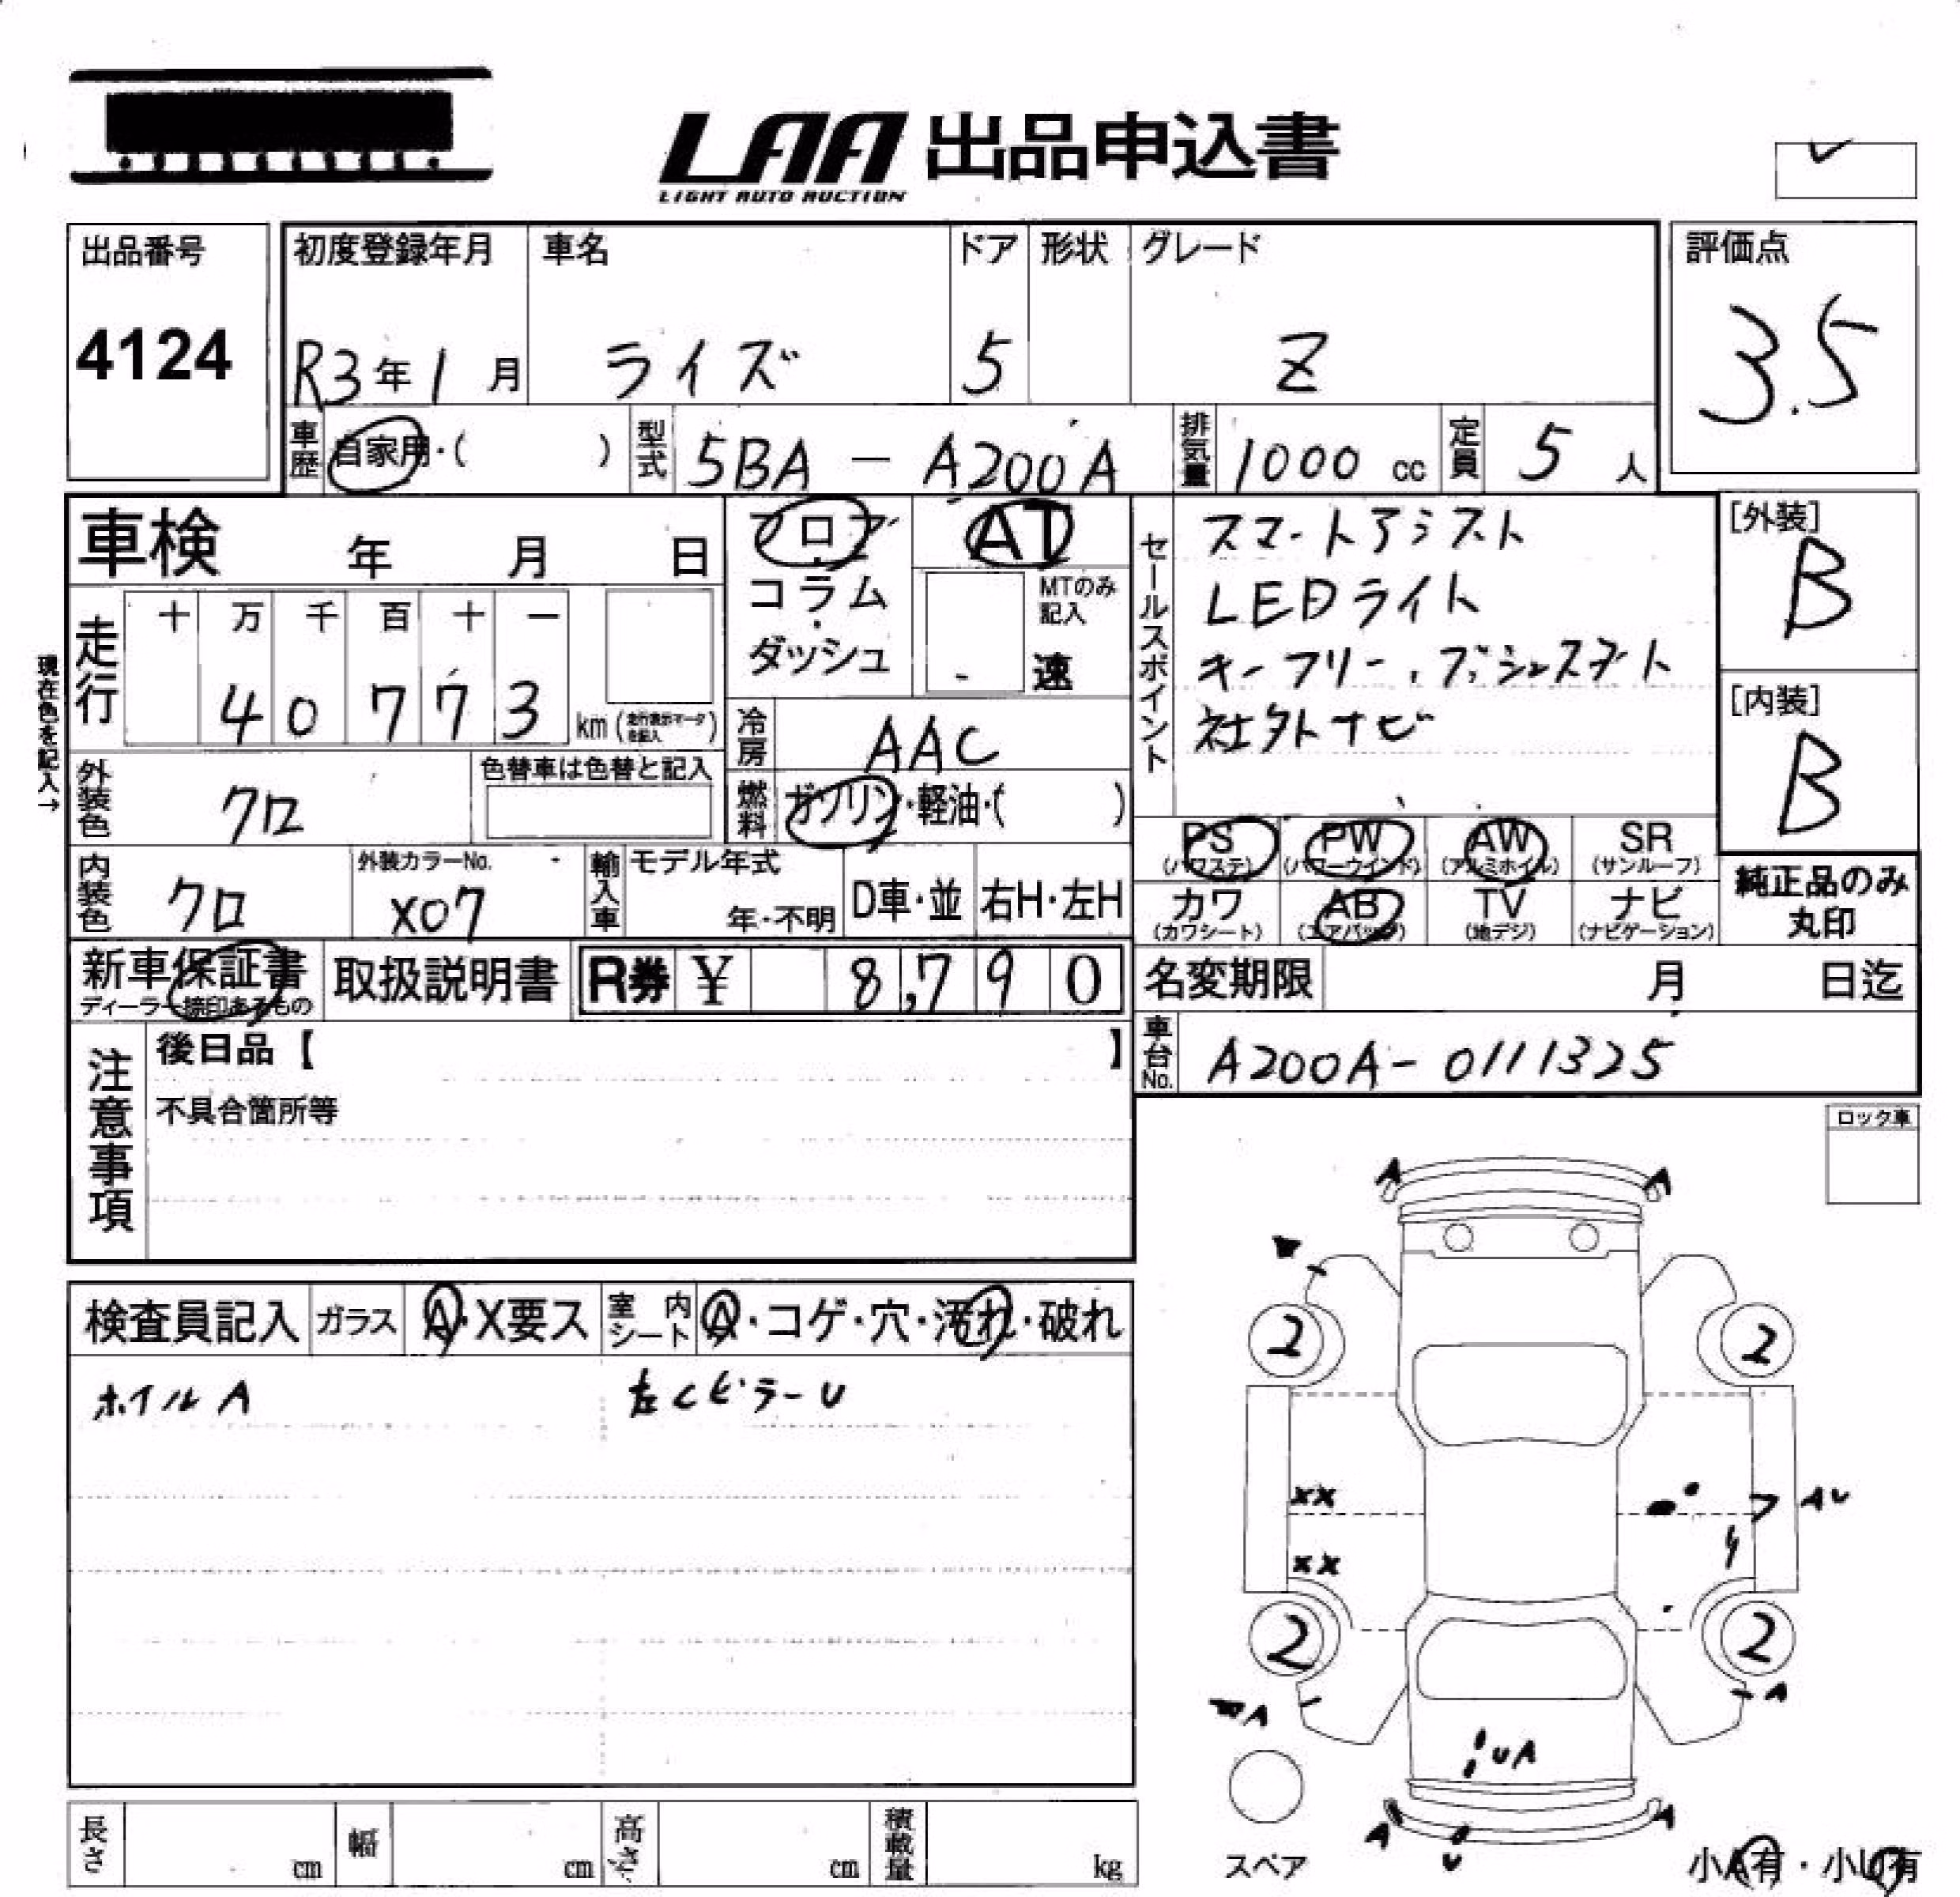 LAA 出品申込書
LIGHT AUTO AUCTION
出品番号
4124
初度登録年月
R3年1月
車名
ライズ
ドア
5
形状
グレード
Z
評価点
3.5
車歴
自家用・( )
型式
5BA - A200A
排気量
1000 cc
定員
5 人
車検 年 月 日
フロア
・
コラム
・
ダッシュ
AT
MTのみ
記入
速
セールスポイント
スマートアシスト
LEDライト
キーフリー、プッシュスタート
社外ナビ
[外装]
B
[内装]
B
現在色を記入→
走行
十 万 千 百 十 一
4 0 7 7 3
km (走行表示マータを記入)
冷房
AAC
燃料
ガソリン・軽油・( )
外装色
クロ
色替車は色替と記入
内装色
クロ
外装カラーNo.
X07
輸入車
モデル年式
年・不明
D車・並
右H・左H
PS
(パワステ)
PW
(パワーウインド)
AW
(アルミホイル)
SR
(サンルーフ)
カワ
(カワシート)
AB
(エアバック)
TV
(地デジ)
ナビ
(ナビゲーション)
純正品のみ
丸印
新車保証書
ディーラー捺印あるもの
取扱説明書
R券 ¥ 8,790
名変期限 月 日迄
車台No.
A200A-0111325
注意事項
後日品【 】
不具合箇所等
ロック車
検査員記入
ガラス
A・X要ス
室内
シート
A・コゲ・穴・汚れ・破れ
ホイルA
左CピラーU
A A
2 2
XX
AU
XX
2 2
A
A
UA
A A
U
スペア
小A有・小U有
長さ cm
幅 cm
高さ cm
積載量 kg